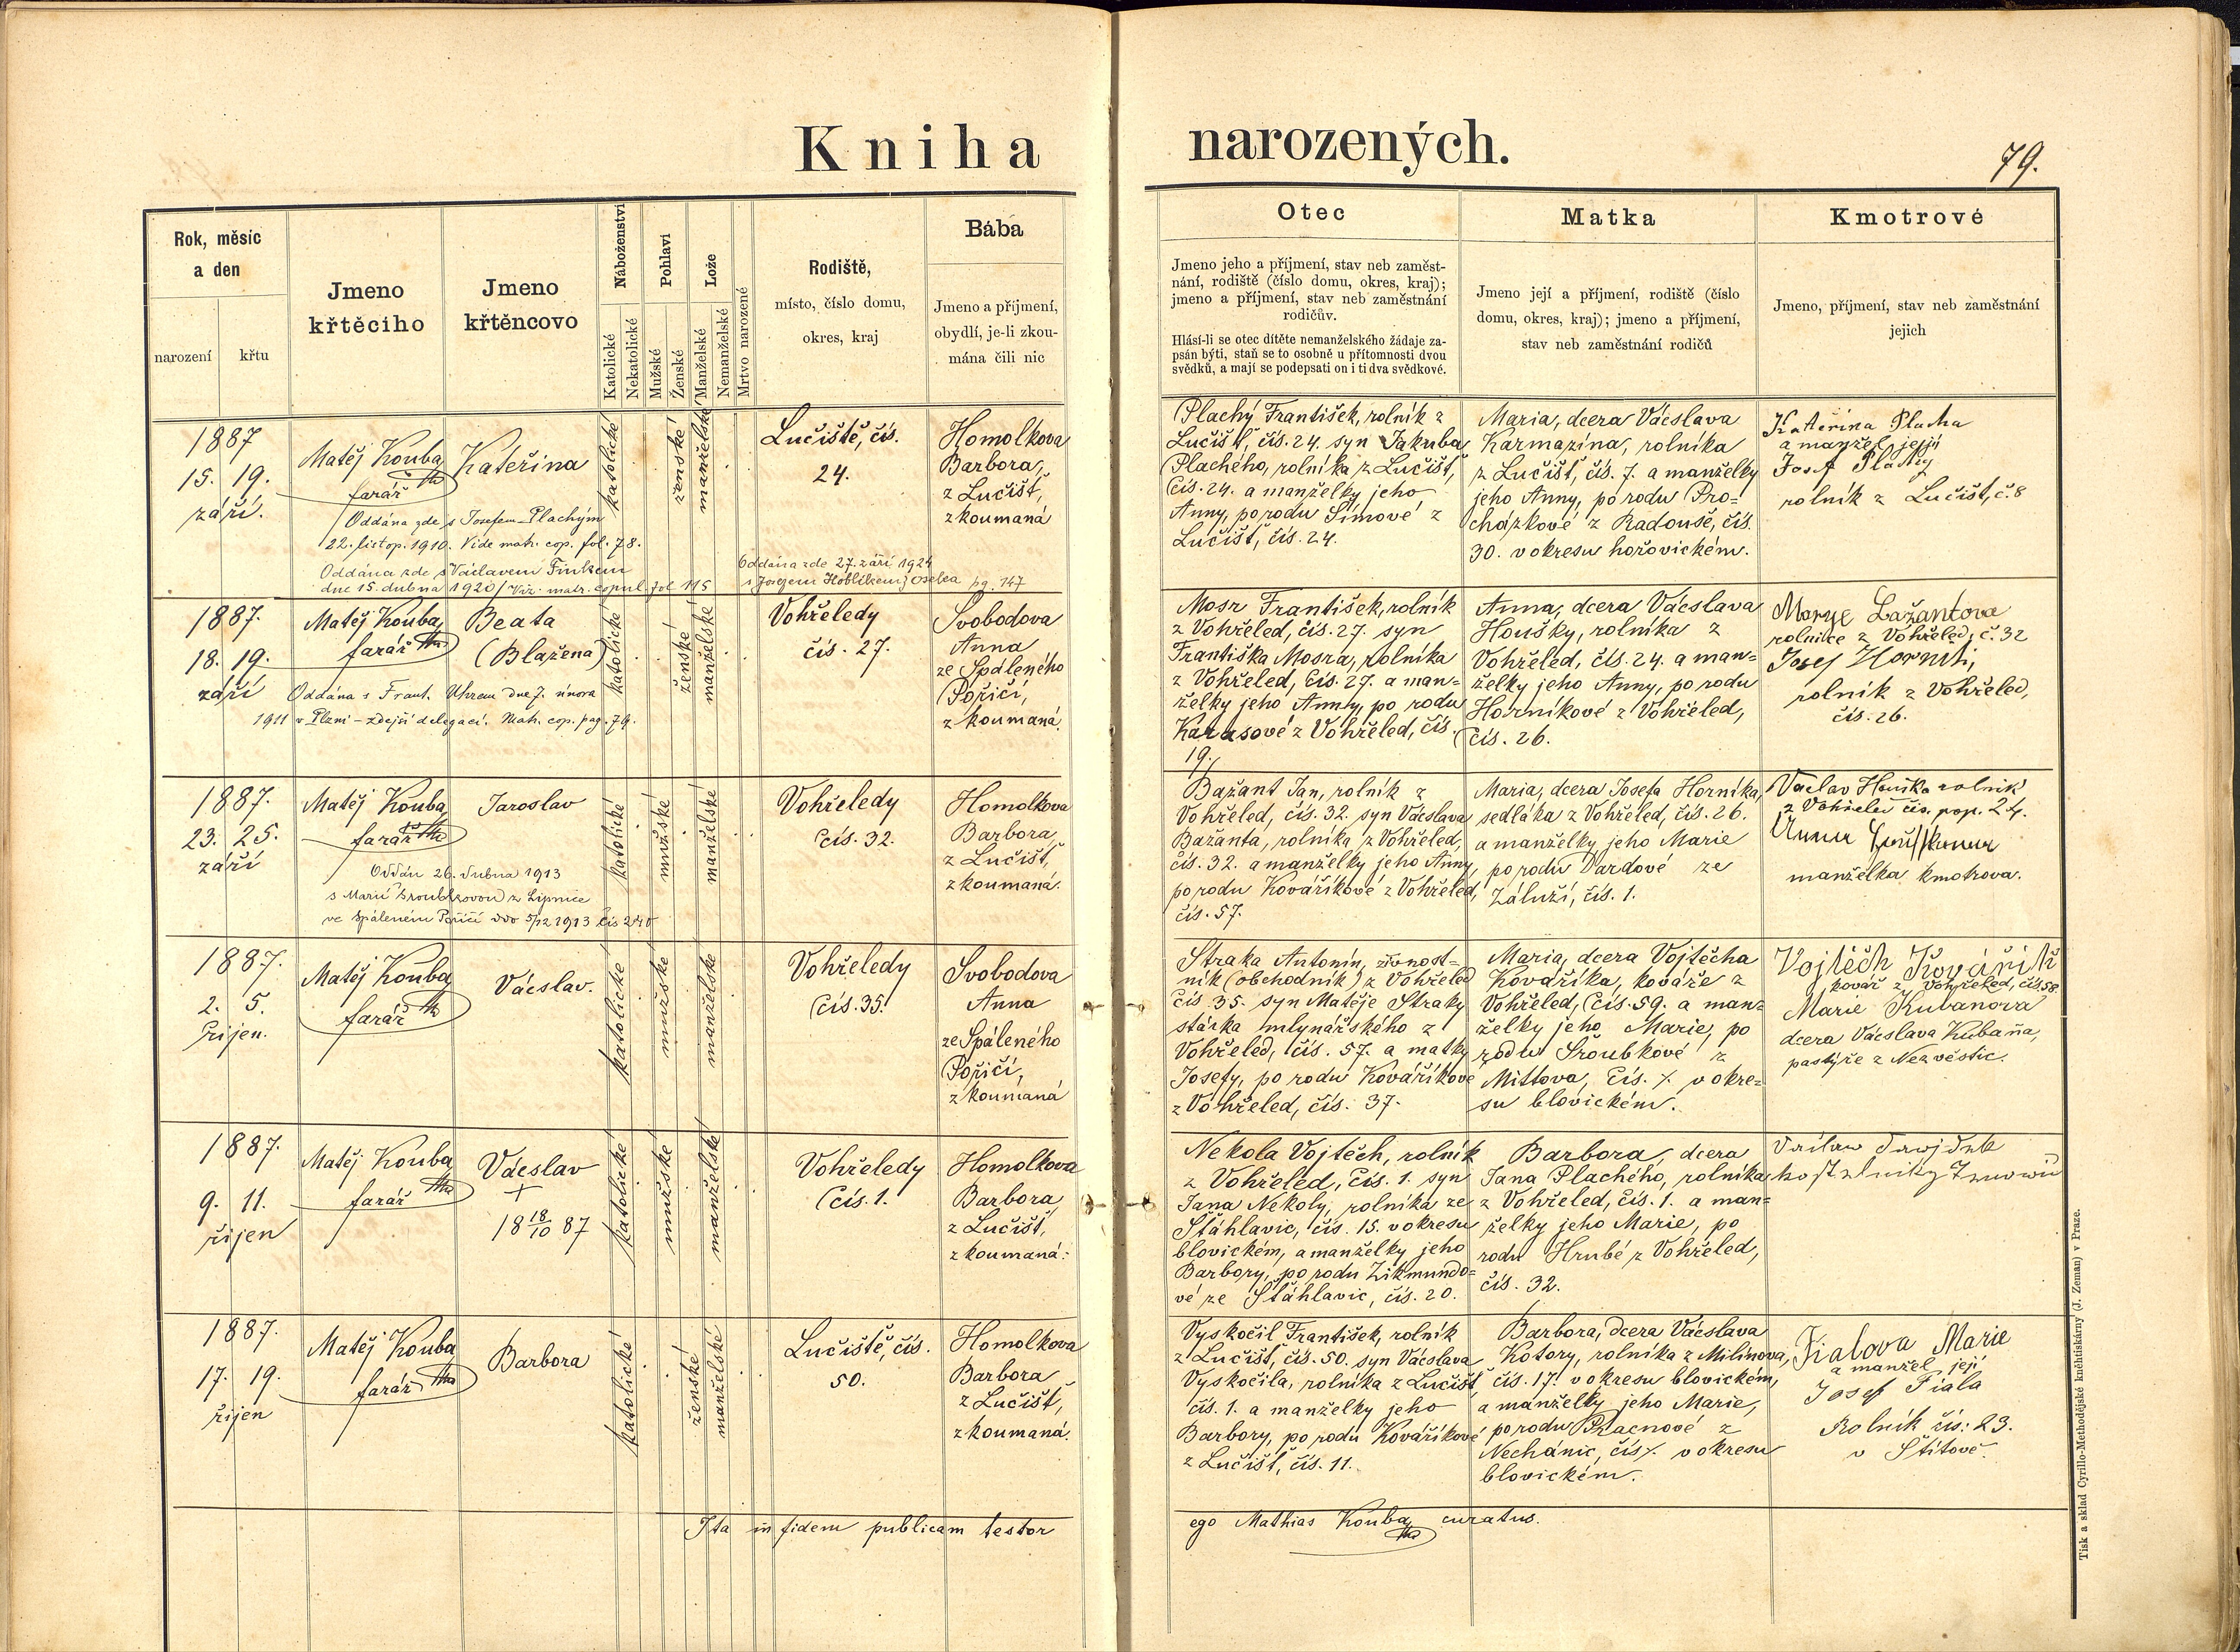 Kniha narozených.
79.
Rok, měsíc
a den
narození
křtu
Jmeno
křtěciho
Jmeno
křtěncovo
Náboženství
Katolické
Nekatolické
Pohlaví
Mužské
Ženské
Lože
Manželské
Nemanželské
Mrtvo narozené
Rodiště,
místo, číslo domu,
okres, kraj
Bába
Jmeno a příjmení,
obydlí, je-li zkou-
mána čili nic
Otec
Jmeno jeho a příjmení, stav neb zaměst-
nání, rodiště (číslo domu, okres, kraj);
jmeno a příjmení, stav neb zaměstnání
rodičův.
Hlásí-li se otec dítěte nemanželského žádaje za-
psán býti, staň se to osobně u přítomnosti dvou
svědků, a mají se podepsati on i ti dva svědkové.
Matka
Jmeno její a příjmení, rodiště (číslo
domu, okres, kraj); jmeno a příjmení,
stav neb zaměstnání rodičů
Kmotrové
Jmeno, příjmení, stav neb zaměstnání
jejich
1887
15. 19.
září.
Matěj Kouba
farář
Kateřina
katolické
ženské
manželské
Lučiště, čís.
24.
Homolkova
Barbora,
z Lučišť,
zkoumaná
Oddána zde s Josefem Plachým
22. listop. 1910. Vide matr. cop. fol. 78.
Oddána zde s Václavem Finkem
dne 15. dubna 1920 / Viz. matr. copul. fol 115
Oddána zde 27. září 1924
s Josefem Hoblíkem z Oselca pg. 147
Plachý František, rolník z
Lučišť, čís. 24. syn Jakuba
Plachého, rolníka z Lučišť,
čís. 24. a manželky jeho
Anny, po rodu Šimové z
Lučišť, čís. 24.
Maria, dcera Vácslava
Karmazína, rolníka
z Lučišť, čís. 7. a manželky
jeho Anny, po rodu Pro-
cházkové z Radouše, čís.
30. v okresu hořovickém.
Kateřina Placha
a manžel její
Josef Plachy
rolník z Lučišt, č. 8
1887.
18. 19.
září
Matěj Kouba,
farář
Beata
(Blažena)
katolické
ženské
manželské
Vohřeledy
čís. 27.
Svobodova
Anna
ze Spáleného
Poříčí,
zkoumaná.
Oddána s Frant. Uhrem dne 7. února
1911 v Plzni - zdejší delegací. Matr. cop. pag. 79.
Mosr František, rolník
z Vohřeled, čís. 27. syn
Františka Mosra, rolníka
z Vohřeled, čís. 27. a man-
želky jeho Anny, po rodu
Karasové z Vohřeled, čís.
19.
Anna, dcera Vácslava
Houšky, rolníka z
Vohřeled, čís. 24. a man-
želky jeho Anny, po rodu
Horníkové z Vohřeled,
čís. 26.
Marye Bažantova
rolnice z Vohřeled, č. 32
Josef Horník,
rolník z Vohřeled,
čís. 26.
1887.
23. 25.
září
Matěj Kouba
farář
Jaroslav
katolické
mužské
manželské
Vohřeledy
čís. 32.
Homolkova
Barbora,
z Lučišť,
zkoumaná.
Oddán 26. dubna 1913
s Marií Šroubkovou z Lipnice
ve Spáleném Poříčí ddo 5/12 1913 čís 240
Bažant Jan, rolník z
Vohřeled, čís. 32. syn Vácslava
Bažanta, rolníka z Vohřeled,
čís. 32. a manželky jeho Anny,
po rodu Kováříkové z Vohřeled,
čís. 57.
Maria, dcera Josefa Horníka,
sedláka z Vohřeled, čís. 26.
a manželky jeho Marie
po rodu Dardové ze
Záluží, čís. 1.
Vaclav Houška rolník
z Vohřeled čís. pop. 24.
Anna
manželka kmotrova.
1887.
2. 5.
říjen.
Matěj Kouba
farář
Vácslav.
katolické
mužské
manželské
Vohřeledy
čís. 35.
Svobodova
Anna
ze Spáleného
Poříčí,
zkoumaná
Straka Antonín, živnost-
ník (obchodník) z Vohřeled
čís 35. syn Matěje Straky
stárka mlynářského z
Vohřeled, čís. 57. a matky
Josefy, po rodu Kováříkové
z Vohřeled, čís. 37.
Maria, dcera Vojtěcha
Kováříka, kováře z
Vohřeled, čís. 59. a man-
želky jeho Marie, po
rodu Šroubkové z
Mítova, čís. %. v okre-
su blovickém.
Vojtěch Kovářík
kovář z Vohřeled, čís. 58
Marie Kubanova
dcera Vácslava Kubaňa,
pastýře z Nezvěstic.
1887.
9. 11.
říjen
Matěj Kouba
farář
Vácslav
+
18 18/10 87
katolické
mužské
manželské
Vohřeledy
čís. 1.
Homolkova
Barbora
z Lučišť,
zkoumaná.
Nekola Vojtěch, rolník
z Vohřeled, čís. 1. syn
Jana Nekoly, rolníka ze
Šťáhlavic, čís. 15. v okresu
blovickém, a manželky jeho
Barbory, po rodu Zikmundo-
vé ze Šťáhlavic, čís. 20.
Barbora, dcera
Jana Plachého, rolníka
z Vohřeled, čís. 1. a man-
želky jeho Marie, po
rodu Hrubé z Vohřeled,
čís. 32.
1887.
17. 19.
říjen
Matěj Kouba
farář
Barbora
katolické
ženské
manželské
Lučiště, čís.
50.
Homolkova
Barbora
z Lučišť,
zkoumaná.
Vyskočil František, rolník
z Lučišť, čís. 50. syn Vácslava
Vyskočila, rolníka z Lučišť
čís. 1. a manželky jeho
Barbory, po rodu Kováříkové
z Lučišť, čís. 11.
Barbora, dcera Vácslava
Kotory, rolníka z Milínova,
čís. 17. v okresu blovickém,
a manželky jeho Marie,
po rodu
Nechánic, čís %. v okresu
blovickém.
Fialova Marie
a manžel její
Josef Fiala
Rolník čís: 23.
v Štítově
Ita in fidem publicam testor
ego Mathias Kouba, curatus.
Tisk a sklad Cyrillo-Methodějské knihtiskárny (J. Zeman) v Praze.